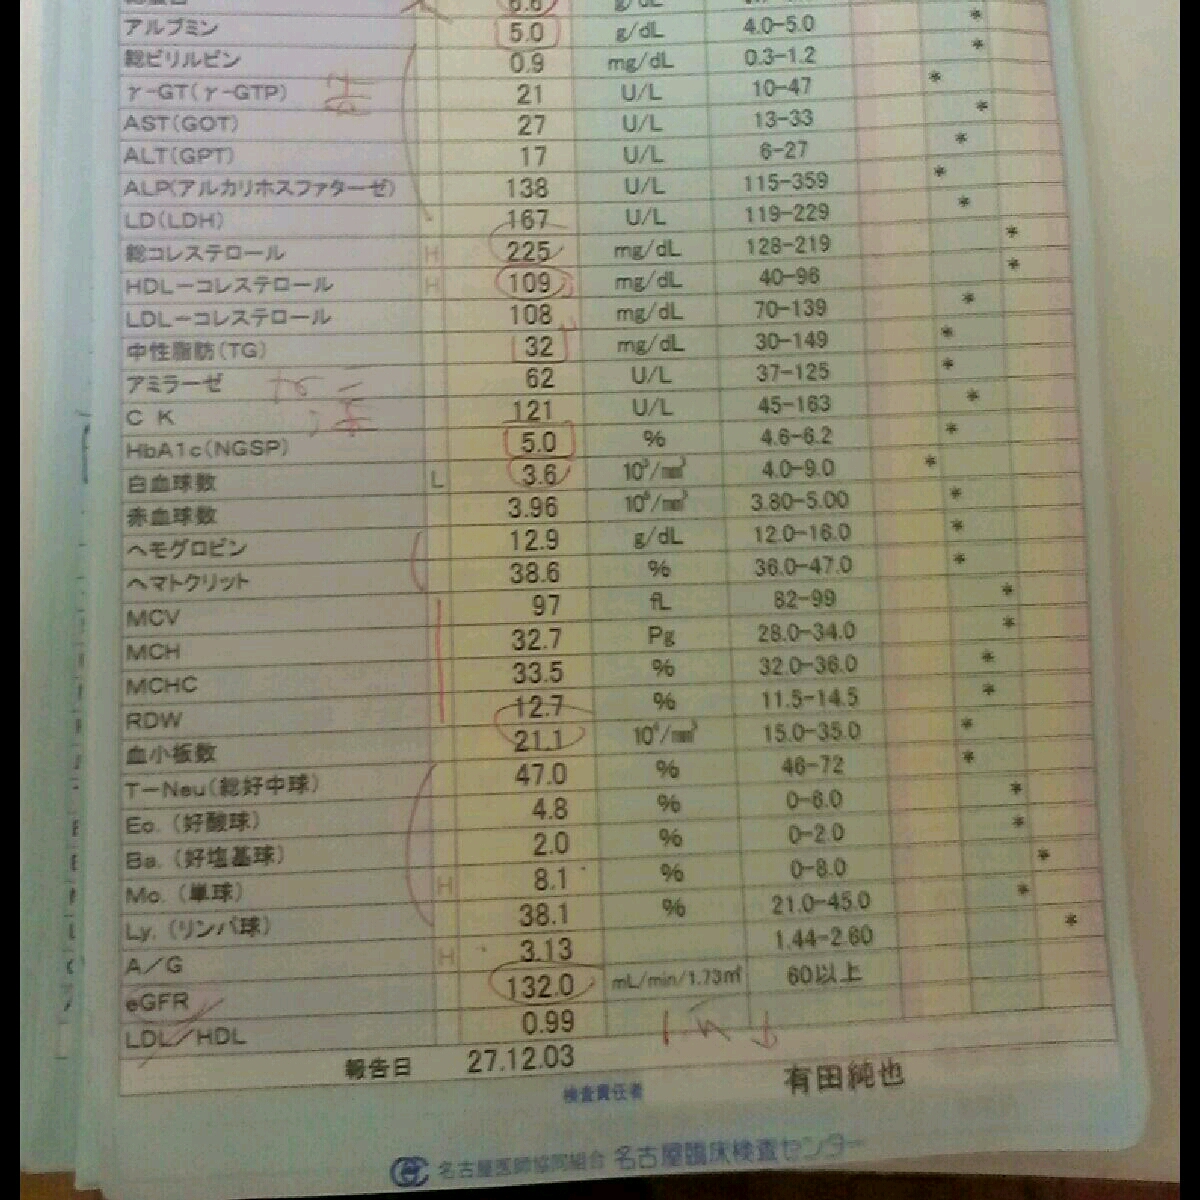 6.6 g/dL
アルブミン 5.0 g/dL 4.0-5.0 *
総ビリルビン 0.9 mg/dL 0.3-1.2 *
γ-GT(γ-GTP) 21 U/L 10-47 *
AST(GOT) 27 U/L 13-33 *
ALT(GPT) 17 U/L 6-27 *
ALP(アルカリホスファターゼ) 138 U/L 115-359 *
LD(LDH) 167 U/L 119-229 *
総コレステロール H 225 mg/dL 128-219 *
HDL-コレステロール H 109 mg/dL 40-96 *
LDL-コレステロール 108 mg/dL 70-139 *
中性脂肪(TG) 32 mg/dL 30-149 *
アミラーゼ 62 U/L 37-125 *
C K 121 U/L 45-163 *
HbA1c(NGSP) 5.0 % 4.6-6.2 *
白血球数 L 3.6 10³/mm³ 4.0-9.0 *
赤血球数 3.96 10⁶/mm³ 3.80-5.00 *
ヘモグロビン 12.9 g/dL 12.0-16.0 *
ヘマトクリット 38.6 % 36.0-47.0 *
MCV 97 fL 82-99 *
MCH 32.7 Pg 28.0-34.0 *
MCHC 33.5 % 32.0-36.0 *
RDW 12.7 % 11.5-14.5 *
血小板数 21.1 10⁴/mm³ 15.0-35.0 *
T-Neu(総好中球) 47.0 % 46-72 *
Eo.(好酸球) 4.8 % 0-6.0 *
Ba.(好塩基球) 2.0 % 0-2.0 *
Mo.(単球) H 8.1 % 0-8.0 *
Ly.(リンパ球) 38.1 % 21.0-45.0 *
A/G H 3.13 1.44-2.60 *
eGFR 132.0 mL/min/1.73㎡ 60以上
LDL/HDL 0.99
報告日 27.12.03
検査責任者 有田純也
名古屋医師協同組合 名古屋臨床検査センター